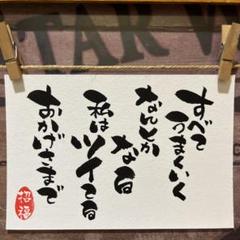 すべて
うまくいく
なんとか
なる
私は
ツイてる
おかげさまで
招福
STAR W